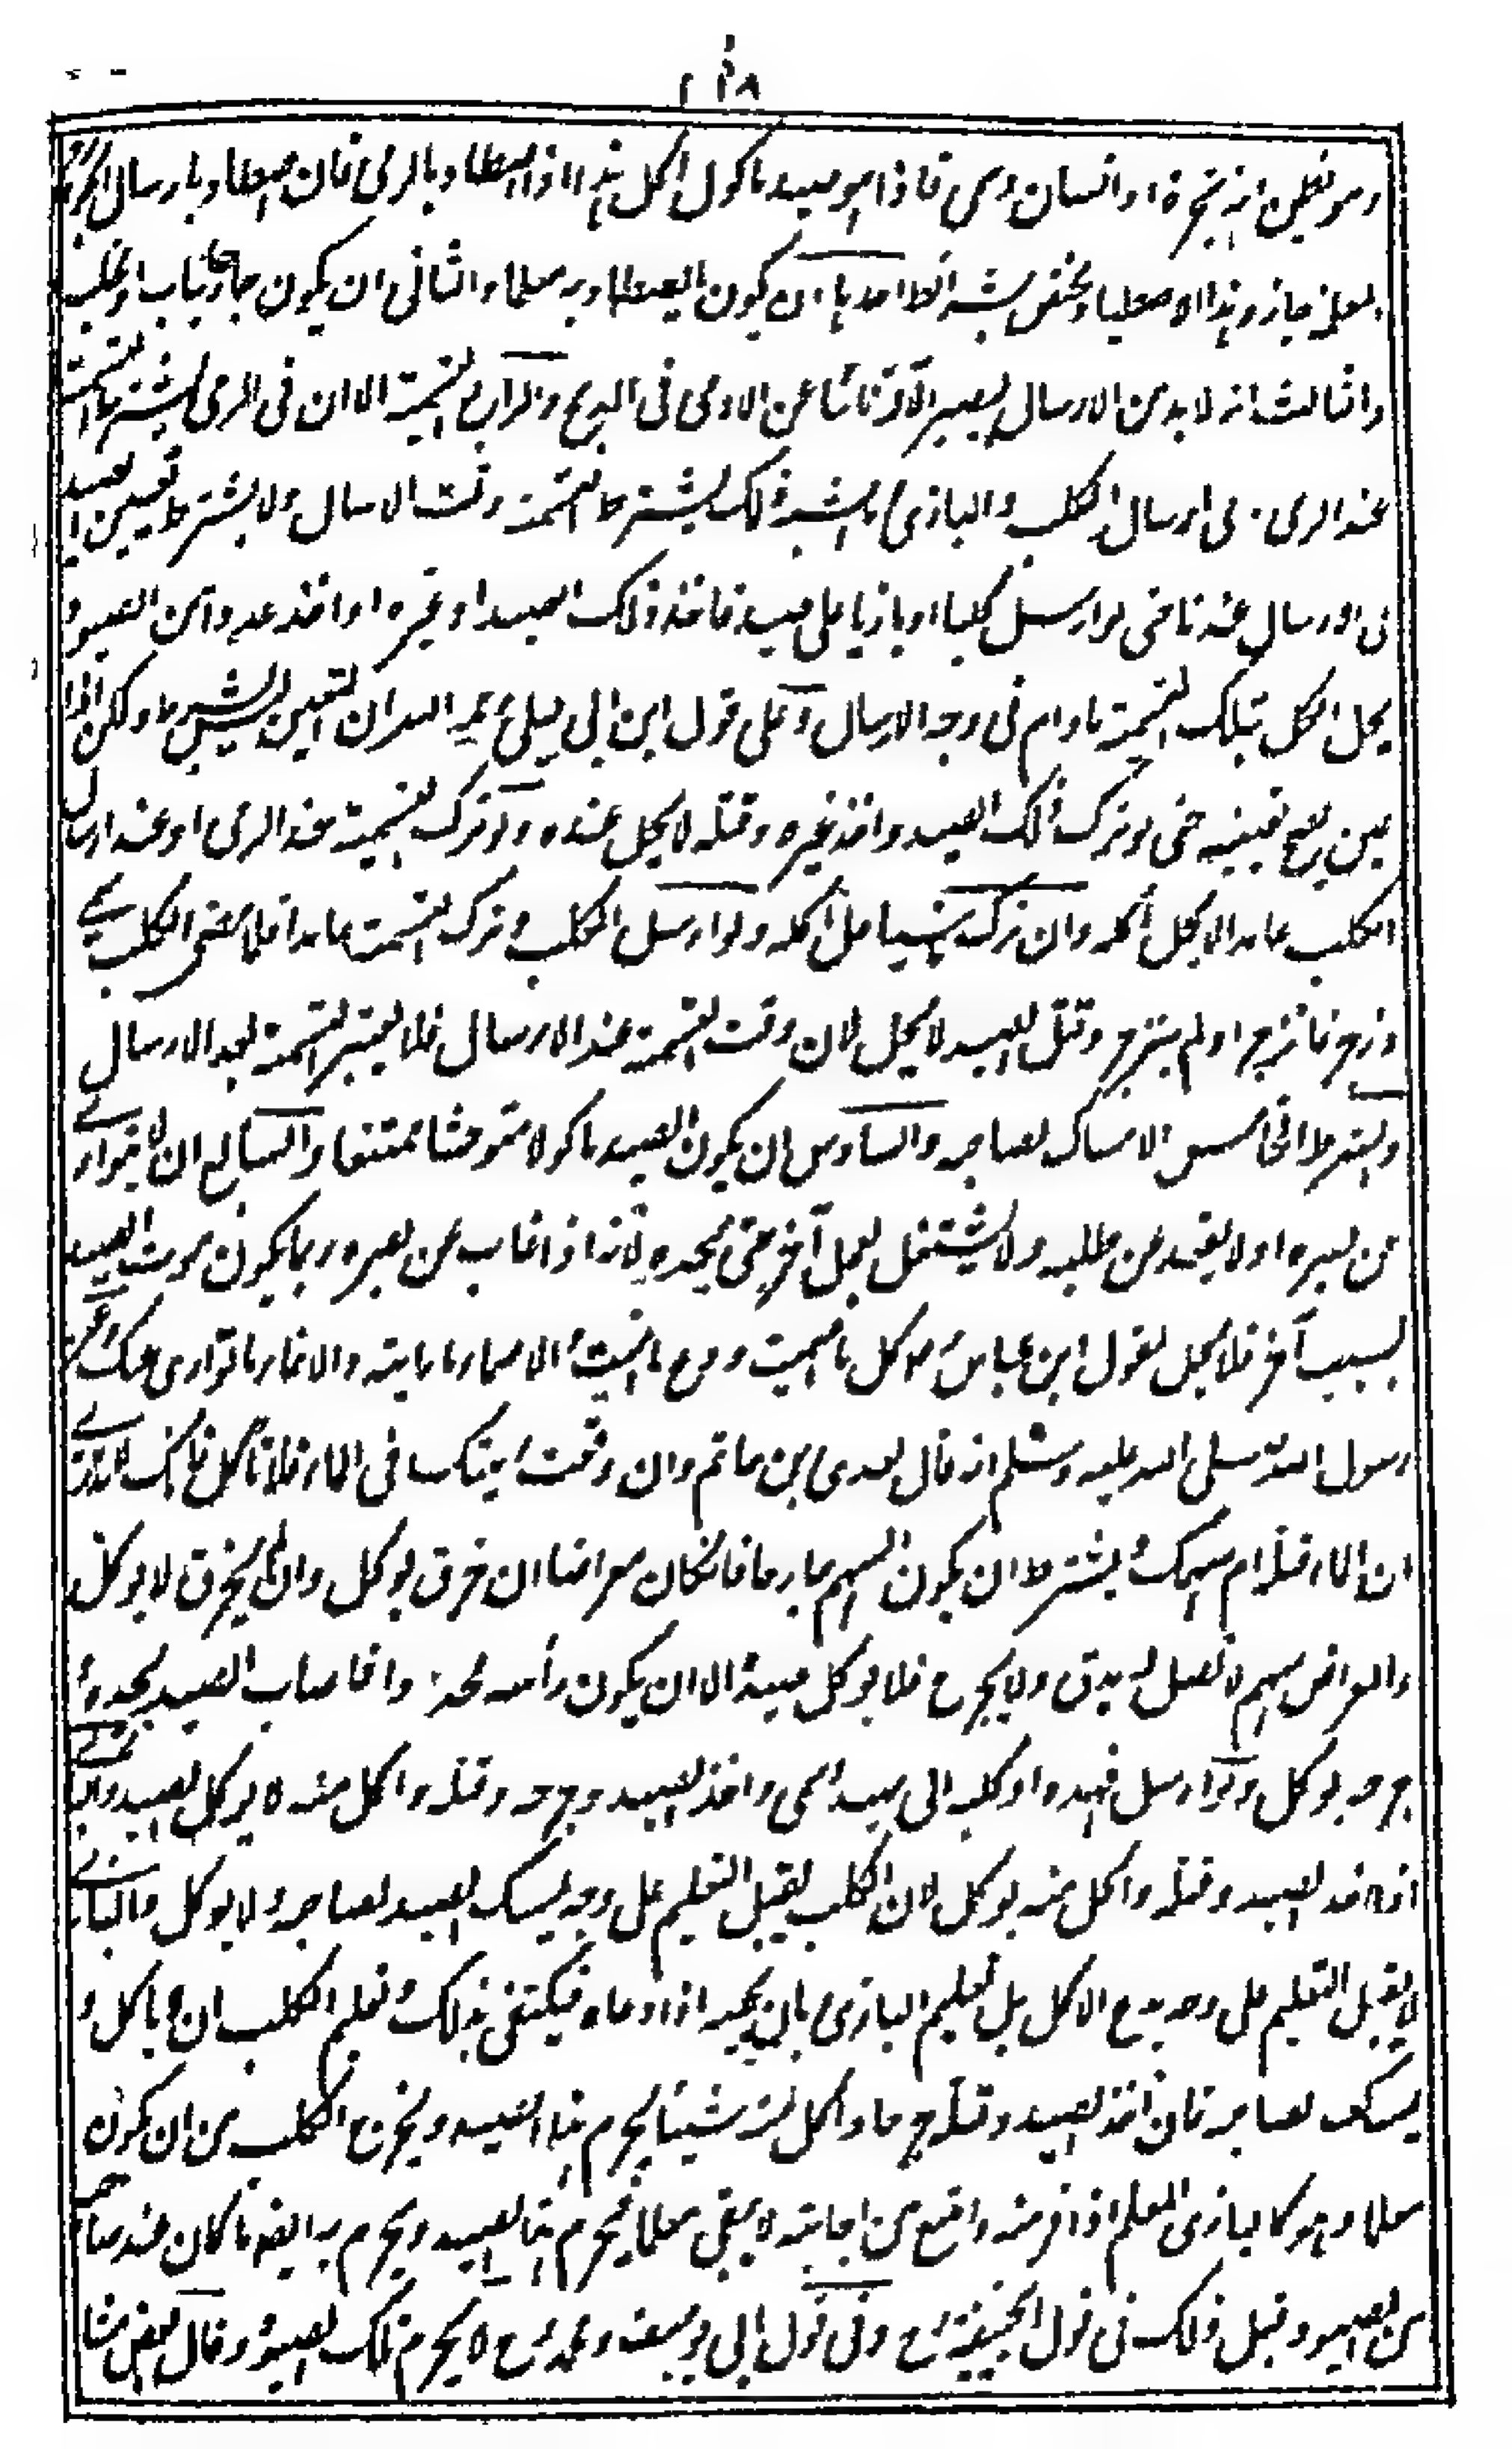 وهو يظن انه شجرة او انسان رمى فاذا هو صيد ماكول اكل هذا اذا اصطاد بالرمى فان اصطاد بارسال
المعلم جاز وهذا الاصطياد يختص بشرائط احدها ان يكون ما يصطاد به معلما والثانى ان يكون جارحا بناب او مخلب
والثالث انه لا بد من الارسال ليصير الآلة نائبا عن الآدمى فى الذبح والرابع التسمية الا ان فى الرمى يشترط التسمية
عند الرمى وفى ارسال الكلب والبازى وما اشبه ذلك يشترط التسمية وقت الارسال ولا يشترط تعيين الصيد
فى الارسال عندنا حتى لو ارسل كلبا او بازيا على صيد فاخذ ذلك الصيد او غيره او اخذ عددا من الصيود
يحل الكل بتلك التسمية ما دام فى وجه الارسال وعلى قول ابن ابى ليلى رحمه الله ان التعيين ليس بشرط ولكن اذا
عين يصح تعيينه حتى لو ترك ذلك الصيد واخذ غيره وقتله لا يحل عنده ولو ترك التسمية عند الرمى او عند ارسال
الكلب عامدا لا يحل اكله وان ترك ناسيا حل اكله ولو ارسل الكلب وترك التسمية عامدا فلما مضى الكلب سمى
وزجره فانزجر او لم ينزجر وقتل الصيد لا يحل لان وقت التسمية عند الارسال فلا يعتبر التسمية بعد الارسال
والشرط الخامس الامساك لصاحبه والسادس ان يكون الصيد ماكولا متوحشا ممتنعا والسابع ان لا يتوارى
عن بصره او لا يقعد عن طلبه ولا يشتغل بعمل آخر حتى يجده لانه اذا غاب عن بصره ربما يكون موت الصيد
بسبب آخر فلا يحل لقول ابن عباس رض كل ما اصميت ودع ما انميت والاصماء ما رايته والانماء ما توارى عنك وعن
رسول الله صلى الله عليه وسلم انه قال لعدى بن حاتم وان وقعت رميتك فى الماء فلا تاكل فانك لا تدرى
ان الماء قتله ام سهمك ويشترط ان يكون السهم جارحا فان كان معراضا ان خرق يوكل وان لم يخرق لا يوكل
والمعراض سهم لا نصل له يدق ولا يجرح فلا يوكل صيده الا ان يكون رأسه محددا واذا اصاب الصيد بحده و
جرحه يوكل ولو ارسل فهده او كلبه الى صيد وسمى واخذ الصيد وجرحه وقتله واكل منه لا يوكل الصيد والبازى
اذا اخذ الصيد وقتله واكل منه يوكل لان الكلب يقبل التعليم على وجه يمسك الصيد لصاحبه ولا يوكل والبازى
لا يقبل التعليم على وجه يدع الاكل بل تعليم البازى بان يجيبه اذا دعاه فيكتفى بذلك وتعليم الكلب ان لا ياكل و
يمسك لصاحبه فان اخذ الصيد وقتله جرحا واكل منه شيئا يحرم هذا الصيد ويخرج الكلب من ان يكون
معلما وهو كالبازى المعلم اذا فر منه وامتنع عن اجابته لا يبقى معلما فيحرم هذا الصيد ويحرم به ايضا ما كان عند صاحبه
من الصيود قبل ذلك فى قول ابى حنيفة رح وفى قول ابى يوسف ومحمد رح لا يحرم تلك الصيود وقال بعض مشا